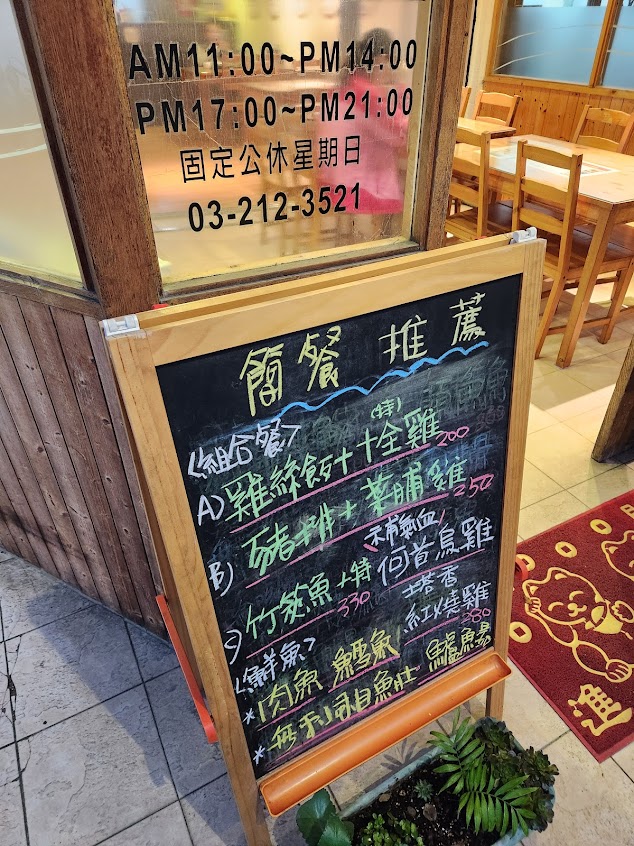 AM11:00~PM14:00
PM17:00~PM21:00
固定公休星期日
03-212-3521
簡餐 推薦
<組合餐>
(特)
A) 雞絲飯+十全雞 200
B) 豬拼+菜脯雞 250
補氣血
竹笙魚+特 330 何首烏雞
塔香
<鮮魚> 紅燒雞 280
*肉魚 鱈魚 鱸魚湯
*無刺虱目魚肚
進